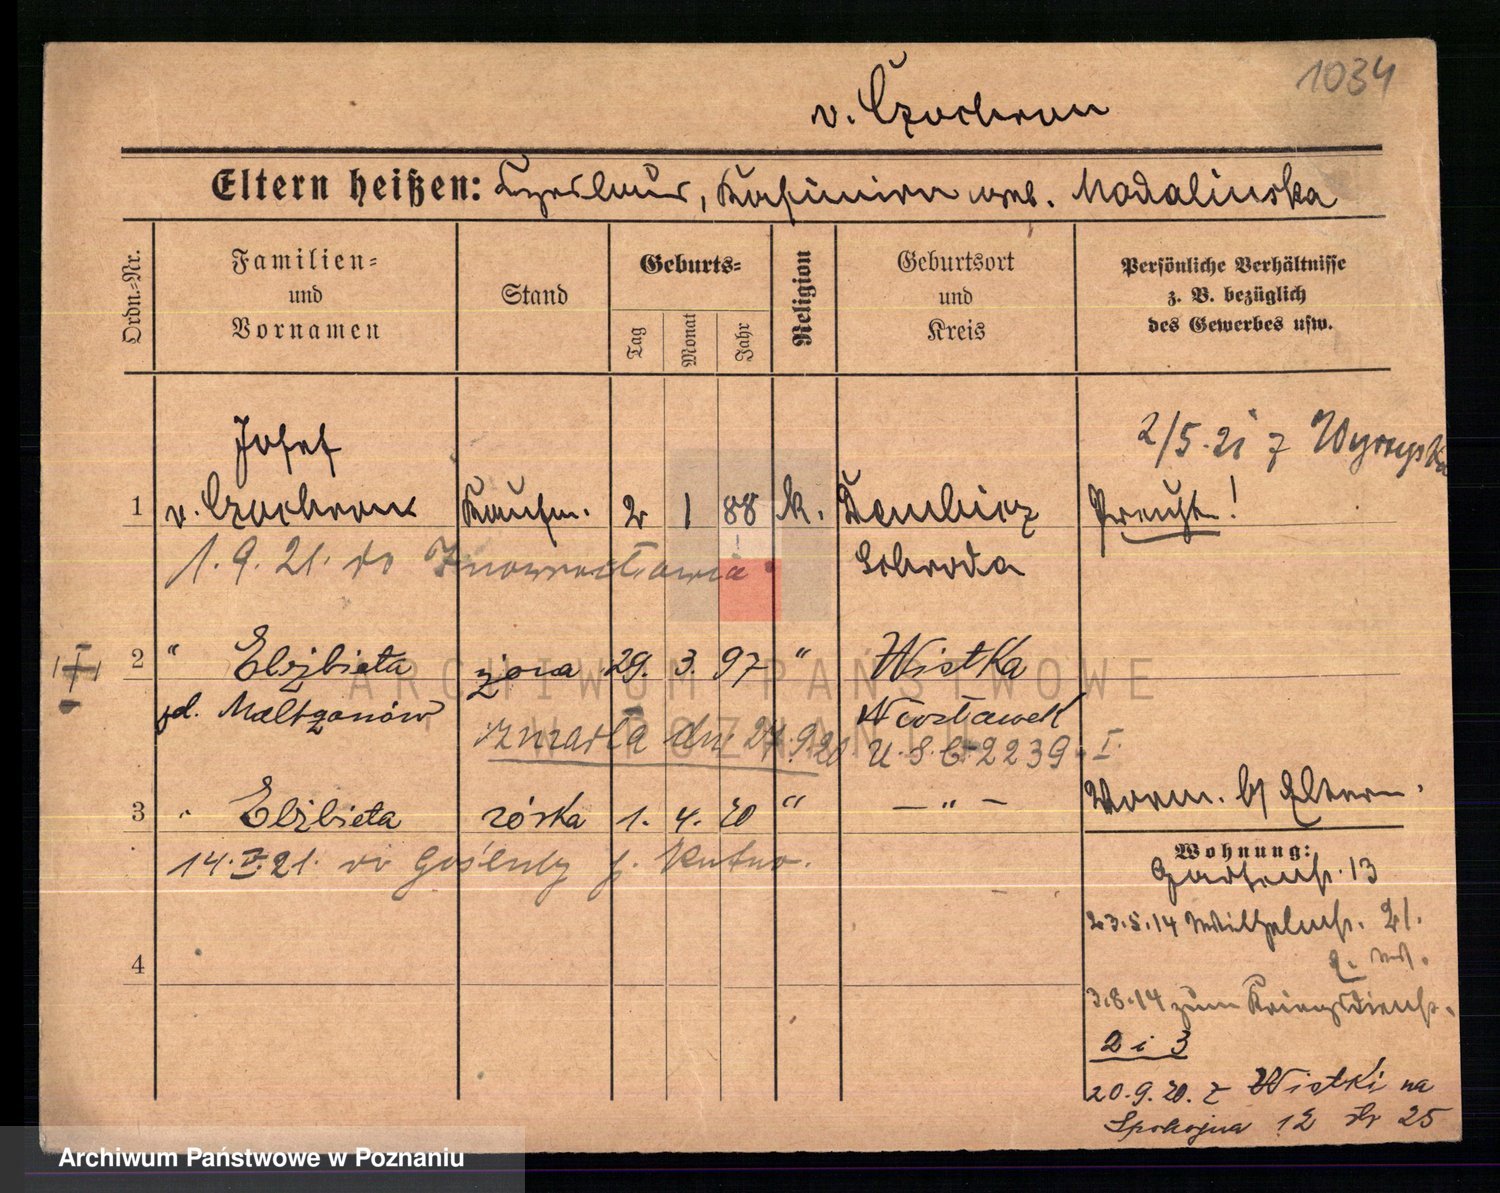 1034
v. Czochron
Eltern heißen: Czeslaus, Kasimiera geb. Madalinska
Ordn.-Nr.
Familien-
und
Vornamen
Stand
Geburts-
Tag
Monat
Jahr
Religion
Geburtsort
und
Kreis
Persönliche Verhältnisse
z. B. bezüglich
des Gewerbes usw.
2/5.21 z Wyrzyska
Josef
1 v. Czochron Kaufm. 2 1 88 k. Dembicz
Preuße!
1.9.21. do Inowrocławia
Schroda
2 " Elżbieta żona 29. 3. 97 " Wistka
zd. Maltzanów
Włocławek
zmarła dn. 24.9.20 U.S.C. 2239. I.
3 " Elżbieta córka 1. 4. 20 " — " —
14.V.21. do p. Kutno.
Vorm. bei Eltern.
Wohnung:
Gartenstr. 13
23.5.14 Wilhelmstr. 21.
3.8.14 zum Kriegsdienst.
4
2 i 3
20.9.20. z Wistki na
Spokojna 12 25
ARCHIWUM PAŃSTWOWE
W POZNANIU
Archiwum Państwowe w Poznaniu